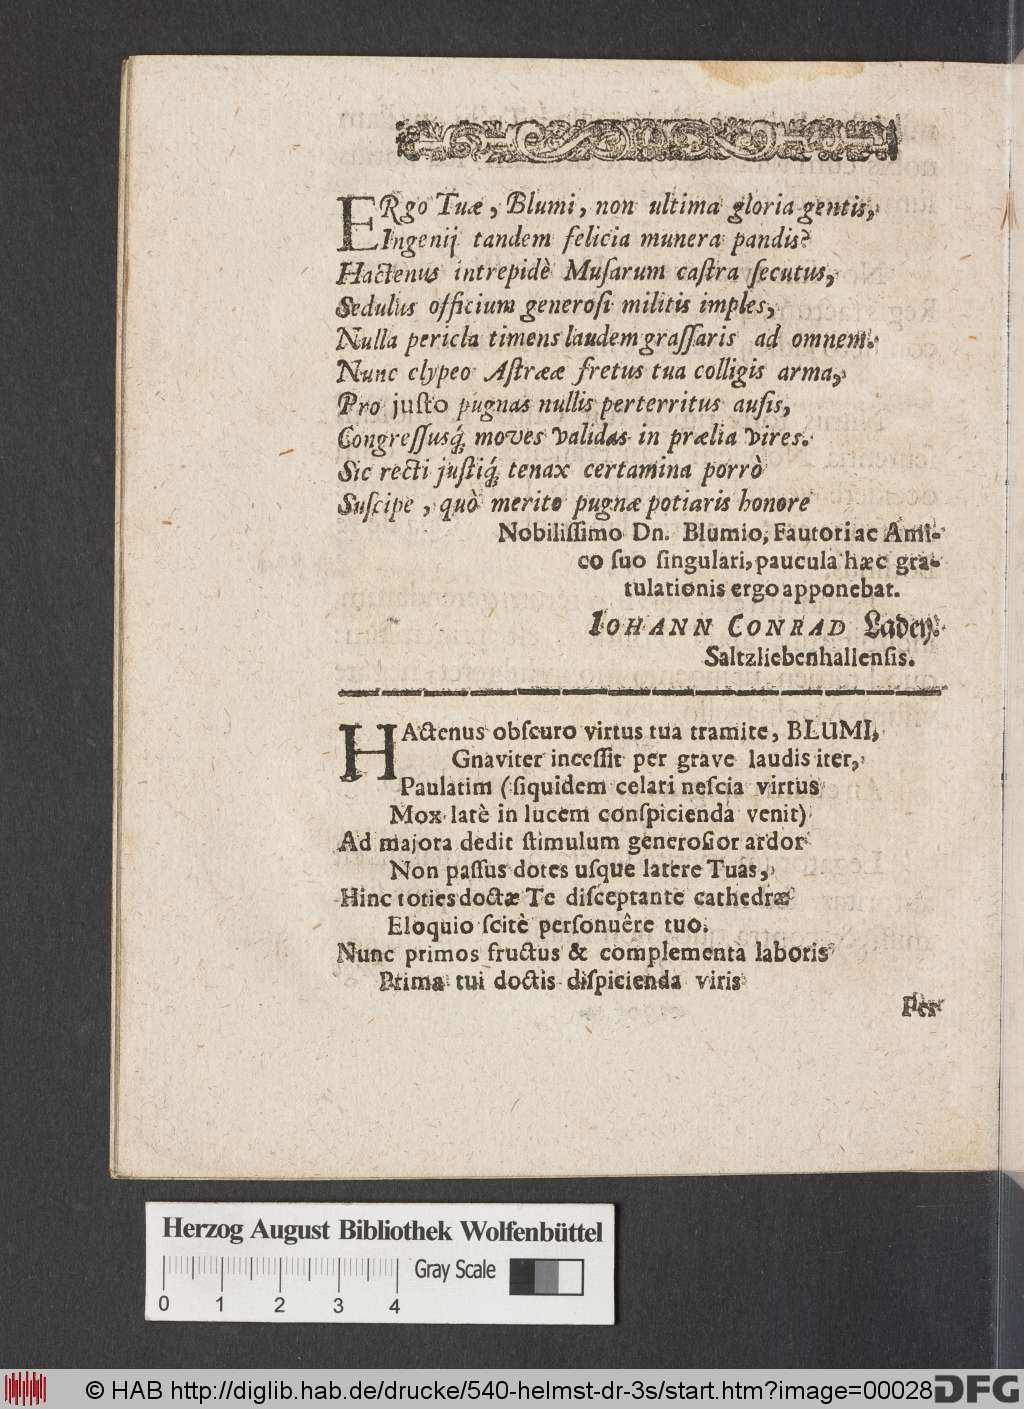 ERgo Tuæ, Blumi, non ultima gloria gentis,
Ingenij tandem felicia munera pandis?
Hactenus intrepidè Muſarum caſtra ſecutus,
Sedulus officium generoſi militis imples,
Nulla pericla timens laudem graſſaris ad omnem.
Nunc clypeo Aſtrææ fretus tua colligis arma,
Pro juſto pugnas nullis perterritus auſis,
Congreſſusq́; moves validas in prælia vires.
Sic recti juſtiq́; tenax certamina porrò
Suſcipe, quò merito pugnæ potiaris honore
Nobiliſſimo Dn. Blumio, Fautori ac Ami-
co ſuo ſingulari, paucula hæc gra-
tulationis ergo apponebat.
IOHANN CONRAD Laden.
Saltzliebenhallenſis.
HActenus obſcuro virtus tua tramite, BLUMI,
Gnaviter inceſſit per grave laudis iter,
Paulatim (ſiquidem celari neſcia virtus
Mox latè in lucem conſpicienda venit)
Ad majora dedit ſtimulum generoſior ardor
Non paſſus dotes uſque latere Tuas,
Hinc toties doctæ Te diſceptante cathedræ
Eloquio ſcitè perſonuêre tuo.
Nunc primos fructus & complementa laboris
Prima tui doctis diſpicienda viris
Per
Herzog August Bibliothek Wolfenbüttel
Gray Scale
0 1 2 3 4
© HAB http://diglib.hab.de/drucke/540-helmst-dr-3s/start.htm?image=00028
DFG